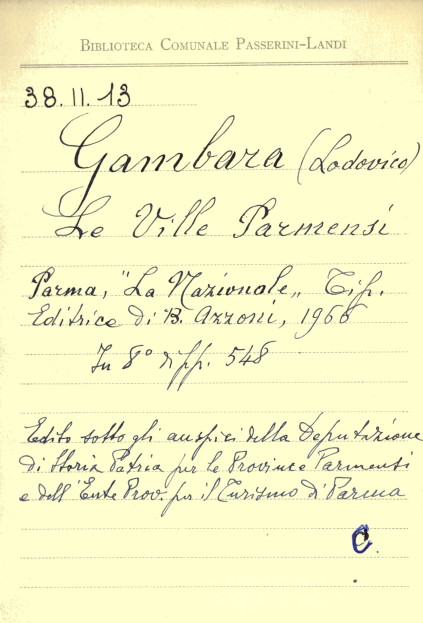 BIBLIOTECA COMUNALE PASSERINI-LANDI
38.II.13
Gambara (Lodovico)
Le Ville Parmensi
Parma, "La Nazionale„ Tip.
Editrice di B. Azzoni, 1966
In 8° di pp. 548
Edito sotto gli auspici della Deputazione
di Storia Patria per le Province Parmensi
e dell'Ente Prov. per il Turismo di Parma
C.